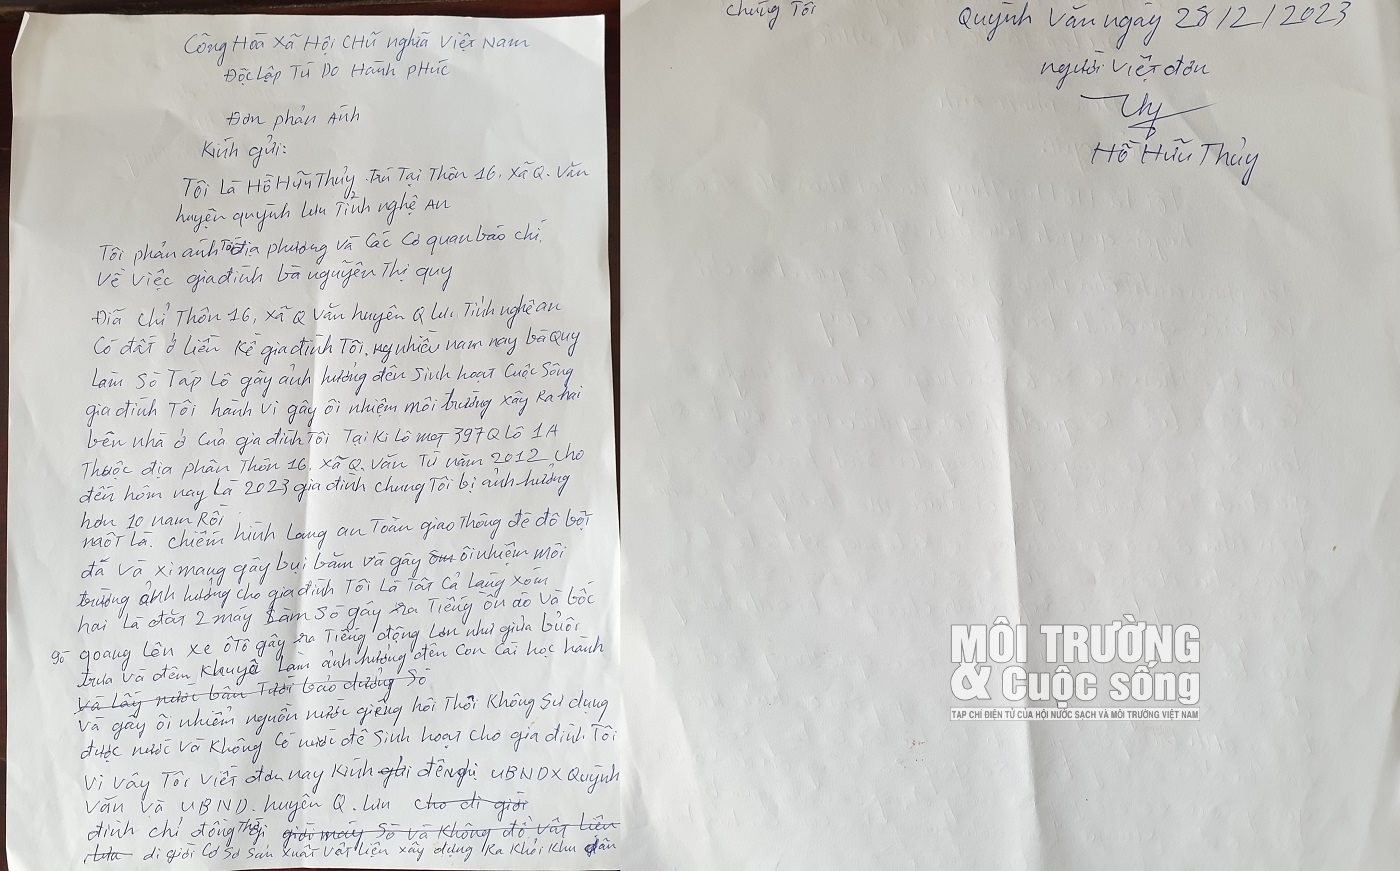 Công Hoà Xã Hội Chũ nghĩa Việt Nam
Độc Lập Tứ Do Hành PHúc
Đơn phản Ánh
Kính gửi:
Tôi Là Hồ Hữu Thủy. trú Tại Thôn 16. xã Q. Văn
huyện quỳnh Lưu Tỉnh nghệ An
Tôi phản ánh Tới địa phương và Các Cơ quan báo chí.
Về Việc gia đình bà nguyễn Thị quy
Địa chỉ Thôn 16, xã Q Văn huyện Q Lưu Tỉnh nghệ an
Có đất ở Liền Kề gia đình Tôi, nhiều nam nay bà Quy
Làm Sò Táp Lô gây ảnh hưởng đến Sinh hoạt Cuộc Sông
gia đình Tôi hành vi gây ôi nhiệm môi trường xảy Ra hai
bên nhà ở Của gia đình Tôi Tại Ki Lô met 397 Q Lô 1A
Thuộc địa phân Thôn 16. xã Q. Văn Từ năm 2012 cho
đến hôm nay Là 2023 gia đình chung Tôi bị ảnh hưởng
hơn 10 nam Rồi
một Là. chiếm hành Lang an Toàn giao Thông đê đô bột
đá và xi mang gây bụi bẩm và gây ôi nhiệm môi
trường ảnh hưởng cho gia đình Tôi Là Tất Cả Làng xóm
hai Là đăt 2 máy Làm Sò gây Ra Tiếng ồn ào và bốc
gò qoang Lên xe ôTô gây Ra Tiếng động Lơn như giữa buổi
trưa và đêm Khuya Làm ảnh hưởng đến Con Cái học hành
và Lấy nước bân Tưới bảo dưỡng Sò
Và gây ôi nhiểm nguồn nước giếng hôi Thối Không Sư dụng
được nước và Không Có nước đê Sinh hoạt cho gia đình Tôi
Vì Vậy Tôi Viết đơn nay Kính gửi đê Nghị UBND X Quỳnh
Văn và UBND. huyện Q. Lưu cho di giời
đình chỉ đồng Thời giời máy Sò và Không đổ vật Liên
di giời Cơ Sở Sản xuất Vât Liện xây dựng Ra Khỏi Khu dân
Chúng Tôi
Quỳnh Văn ngày 28/12/2023
người Việt đơn
Thy
Hồ Hữu Thủy
MÔI TRƯỜNG
& Cuộc sống
TẠP CHÍ ĐIỆN TỬ CỦA HỘI NƯỚC SẠCH VÀ MÔI TRƯỜNG VIỆT NAM